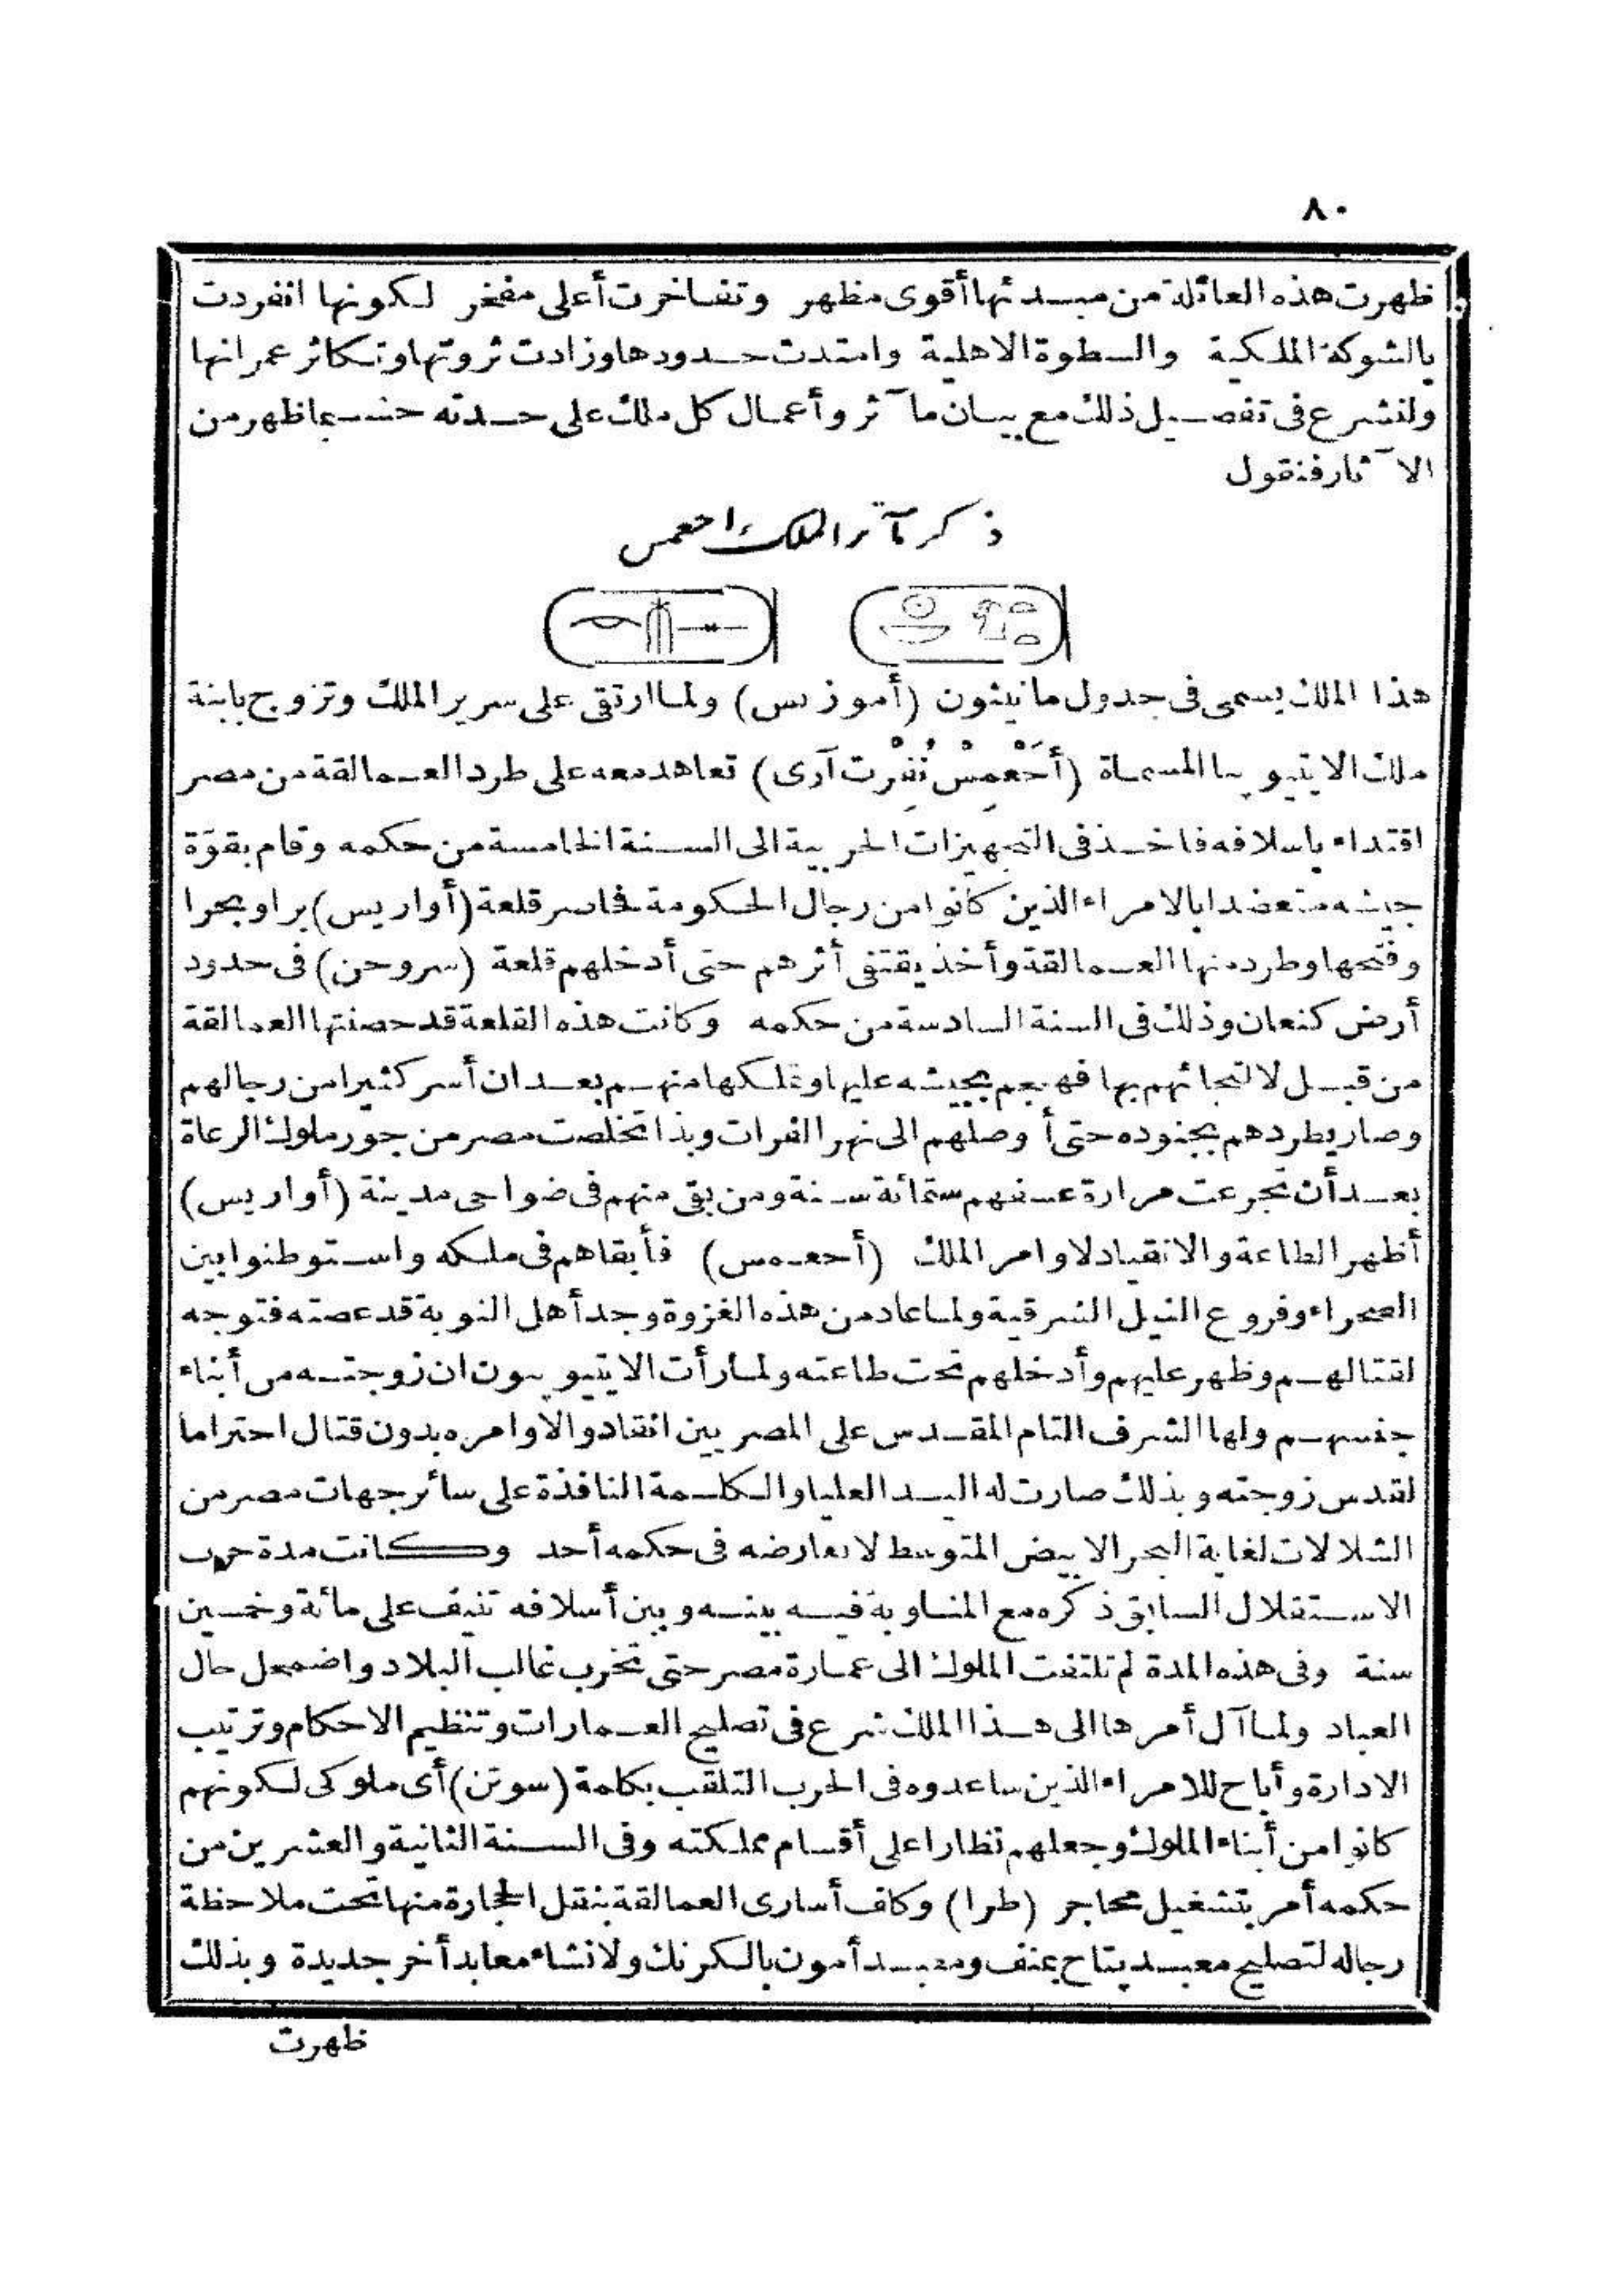 ٨٠
ظهرت هذه العائلة من مبدئها أقوى مظهر وتفاخرت أعلى مفخر لكونها انفردت
بالشوكة الملكية والسطوة الاهلية وامتدت حدودها وزادت ثروتها وتكاثر عمرانها
ولنشرع فى تفصيل ذلك مع بيان مآثر وأعمال كل ملك على حدته حسبما ظهر من
الآثار فنقول
ذكر مآثر الملك احعمس
هذا الملك يسمى فى جدول مانيثون (أموزيس) ولما ارتقى على سرير الملك وتزوج بابنة
ملك الايتيوبيا المسماة (أَحْعمِسْ نُفِرْت آرى) تعاهد معه على طرد العمالقة من مصر
اقتداء باسلافه فاخذ فى التجهيزات الحربية الى السنة الخامسة من حكمه وقام بقوّة
جيشه متعضدا بالامراء الذين كانوا من رجال الحكومة فحاصر قلعة (أواريس) برا وبحرا
وفتحها وطرد منها العمالقة وأخذ يقتفى أثرهم حتى أدخلهم قلعة (سروحن) فى حدود
أرض كنعان وذلك فى السنة السادسة من حكمه وكانت هذه القلعة قد حصنتها العمالقة
من قبل لالتجائهم بها فهجم بجيشه عليها وتملكها منهم بعد ان أسر كثيرا من رجالهم
وصار يطردهم بجنوده حتى أوصلهم الى نهر الفرات وبذا تخلصت مصر من جور ملوك الرعاة
بعد أن تجرعت مرارة عسفهم ستمائة سنة ومن بقى منهم فى ضواحى مدينة (أواريس)
أظهر الطاعة والانقياد لاوامر الملك (أحعمس) فأبقاهم فى ملكه واستوطنوا بين
الصحراء وفروع النيل الشرقية ولما عاد من هذه الغزوة وجد أهل النوبة قد عصته فتوجه
لقتالهم وظهر عليهم وأدخلهم تحت طاعته ولما رأت الايتيوبيون ان زوجته من أبناء
جنسهم ولها الشرف التام المقدس على المصريين انقادوا لاوامره بدون قتال احتراما
لقدس زوجته وبذلك صارت له اليد العليا والكلمة النافذة على سائر جهات مصر من
الشلالات لغاية البحر الابيض المتوسط لا يعارضه فى حكمه أحد وكانت مدة حرب
الاستقلال السابق ذكره مع المناوبة فيه بينه وبين أسلافه تنيف على مائة وخمسين
سنة وفى هذه المدة لم تلتفت الملوك الى عمارة مصر حتى تخرب غالب البلاد واضمحل حال
العباد ولما آل أمرها الى هذا الملك شرع فى تصليح العمارات وتنظيم الاحكام وترتيب
الادارة وأباح للامراء الذين ساعدوه فى الحرب التلقب بكلمة (سوتن) أى ملوكى لكونهم
كانوا من أبناء الملوك وجعلهم نظارا على أقسام مملكته وفى السنة الثانية والعشرين من
حكمه أمر بتشغيل محاجر (طرا) وكلف أسارى العمالقة بنقل الحجارة منها تحت ملاحظة
رجاله لتصليح معبد پتاح بمنف ومعبد أمون بالكرنك ولانشاء معابد أخر جديدة وبذلك
ظهرت